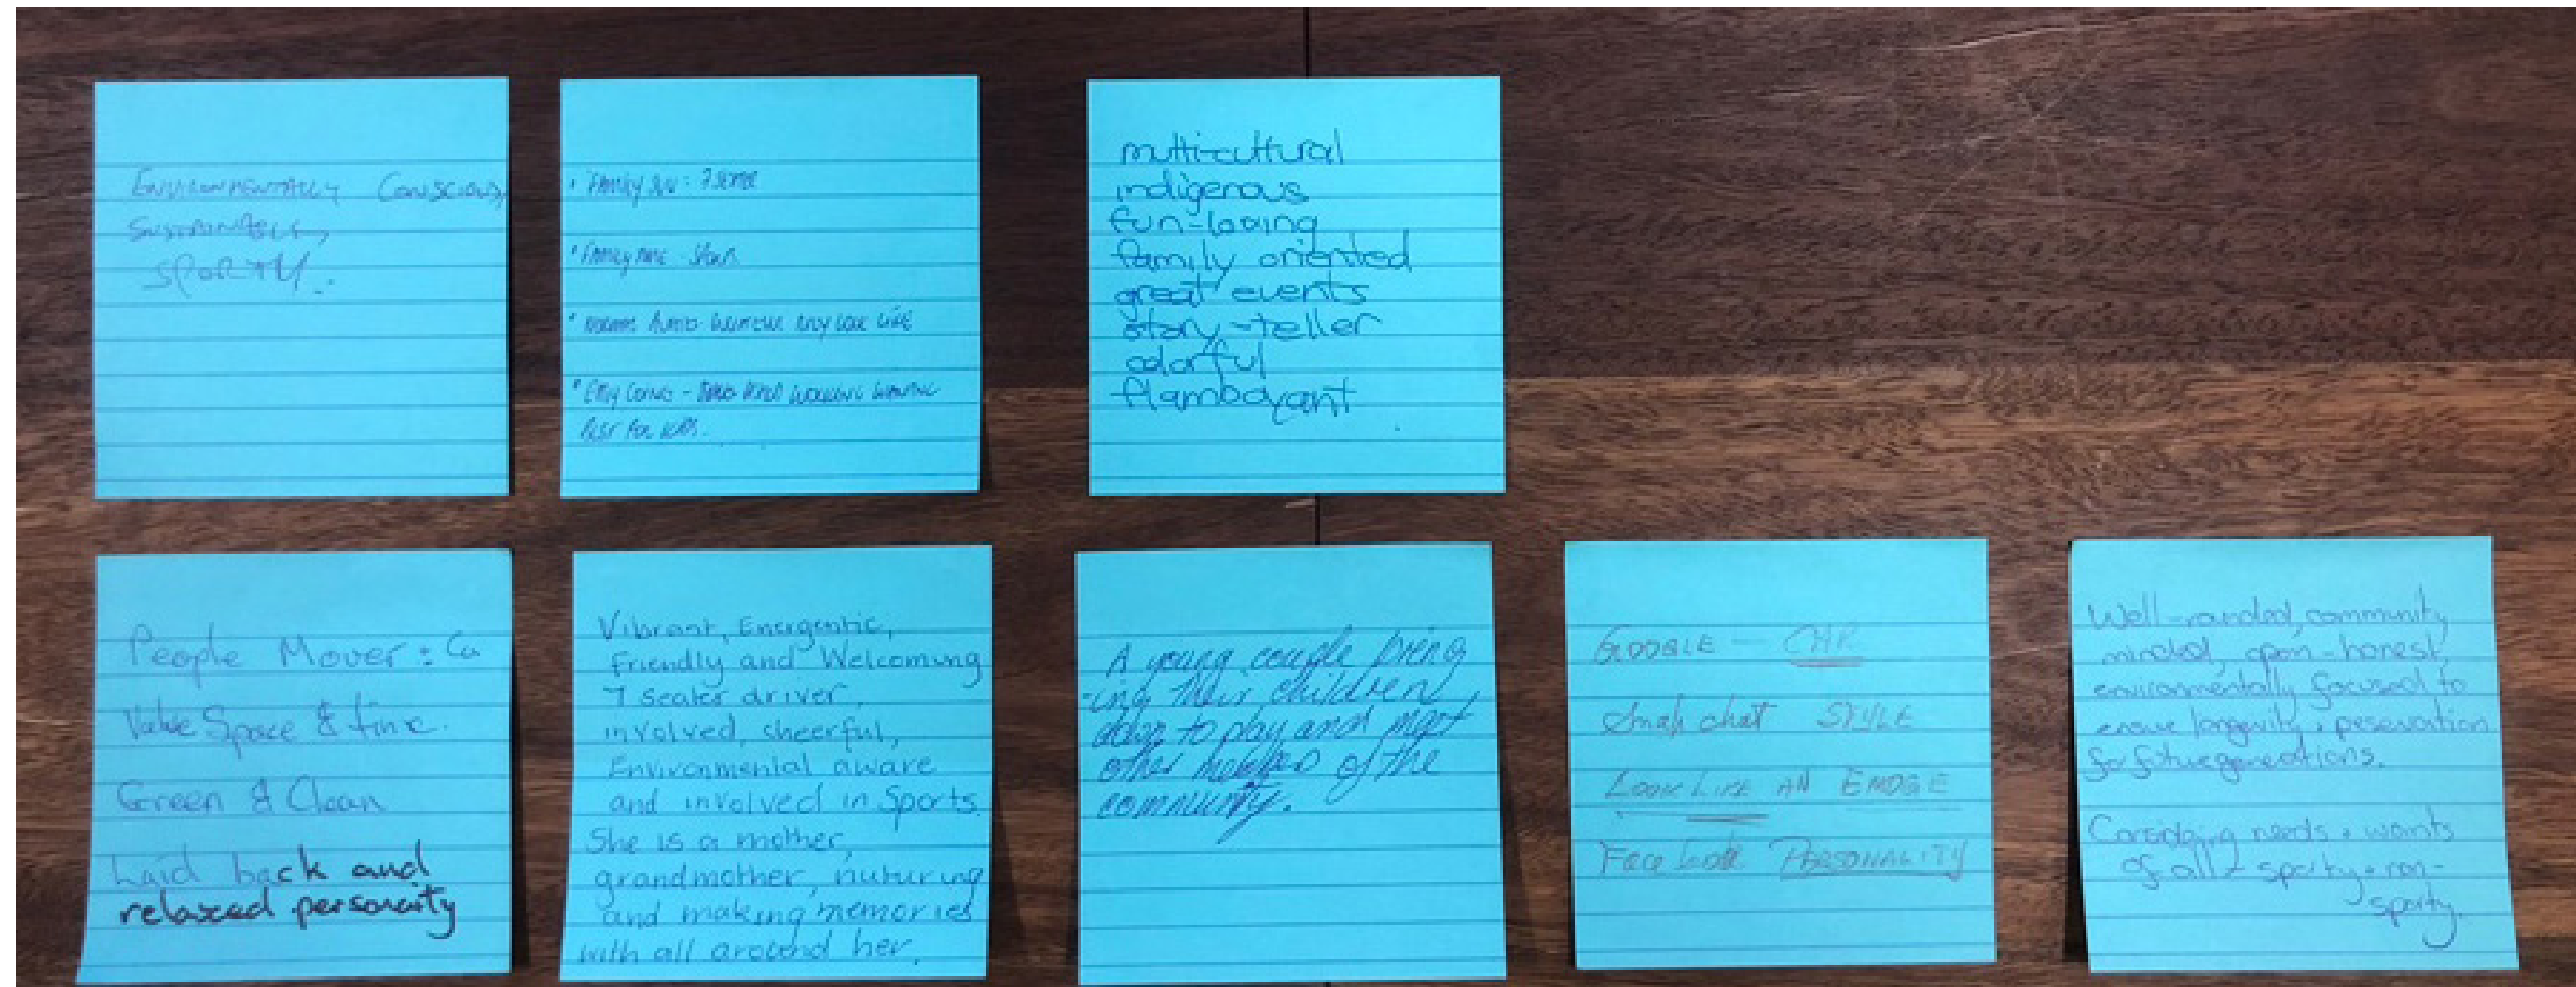 ENVIRONMENTALLY CONSCIOUS,
SUSTAINABLE,
SPORTY.
• Family
• Family
•
• Easy Going -
Best for kids.
multi-cultural
indigenous
fun-loving
family oriented
great events
story-teller
colorful
flamboyant
People Mover :
Value Space & time.
Green & Clean
Laid back and
relaxed personality
Vibrant, Energentic,
Friendly and Welcoming
7 seater driver,
involved, cheerful,
Environmental aware
and involved in Sports.
She is a mother,
grandmother, nuturing
and making memories
with all around her.
A young couple bring
-ing their children
down to play and meet
other members of the
community.
GOOGLE —
Snap chat STYLE
LOOK LIKE AN EMOGE
Face book PERSONALITY
Well-rounded, community
minded, open-honest,
environmentally focused to
ensure longevity + peservation
for future generations.
Considering needs + wants
of all - sporty + non-
sporty.